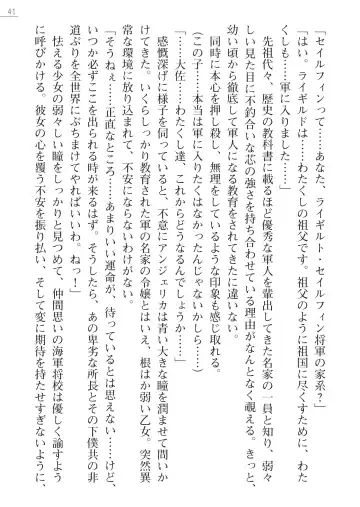 41
「セイルフィンって……あなた、ライギルト・セイルフィン将軍の家系？」
「はい。ライギルドは……わたくしの祖父です。祖父のように祖国に尽くすために、わた
くしも……軍に入りました……」
先祖代々、歴史の教科書に載るほど優秀な軍人を輩出してきた名家の一員と知り、弱々
しい見た目に不釣合いな芯の強さを持ち合わせている理由がなんとなく窺える。きっと、
幼い頃から徹底して軍人になる教育をされてきたに違いない。
同時に本心を押し殺し、無理しているような印象も感じ取れる。
（この子……本当は軍に入りたくはなかったんじゃないかしら……）
「……大佐……わたくし達、これからどうなるんでしょうか……」
感慨深げに様子を伺っていると、不意にアンジェリカは青い大きな瞳を潤ませて問いか
けてくる。いくらしっかり教育された軍の名家の令嬢とはいえ、根はか弱い乙女。突然異
常な環境に放り込まれて、不安にならないわけがない。
「そうねぇ……正直なところ……あまりいい運命が、待っているとは思えない……けど、
いつか必ずここを出られる時が来るはず。そうしたら、あの卑劣な所長とその下僕共の非
道ぶりを全世界にぶちまけてやればいいわ。ねっ！」
怯える少女の弱々しい瞳をしっかりと見つめて、仲間思いの海軍将校は優しく諭すよう
に呼びかける。彼女の心を覆う不安を振り払い、そして変に期待を持たせすぎないように、